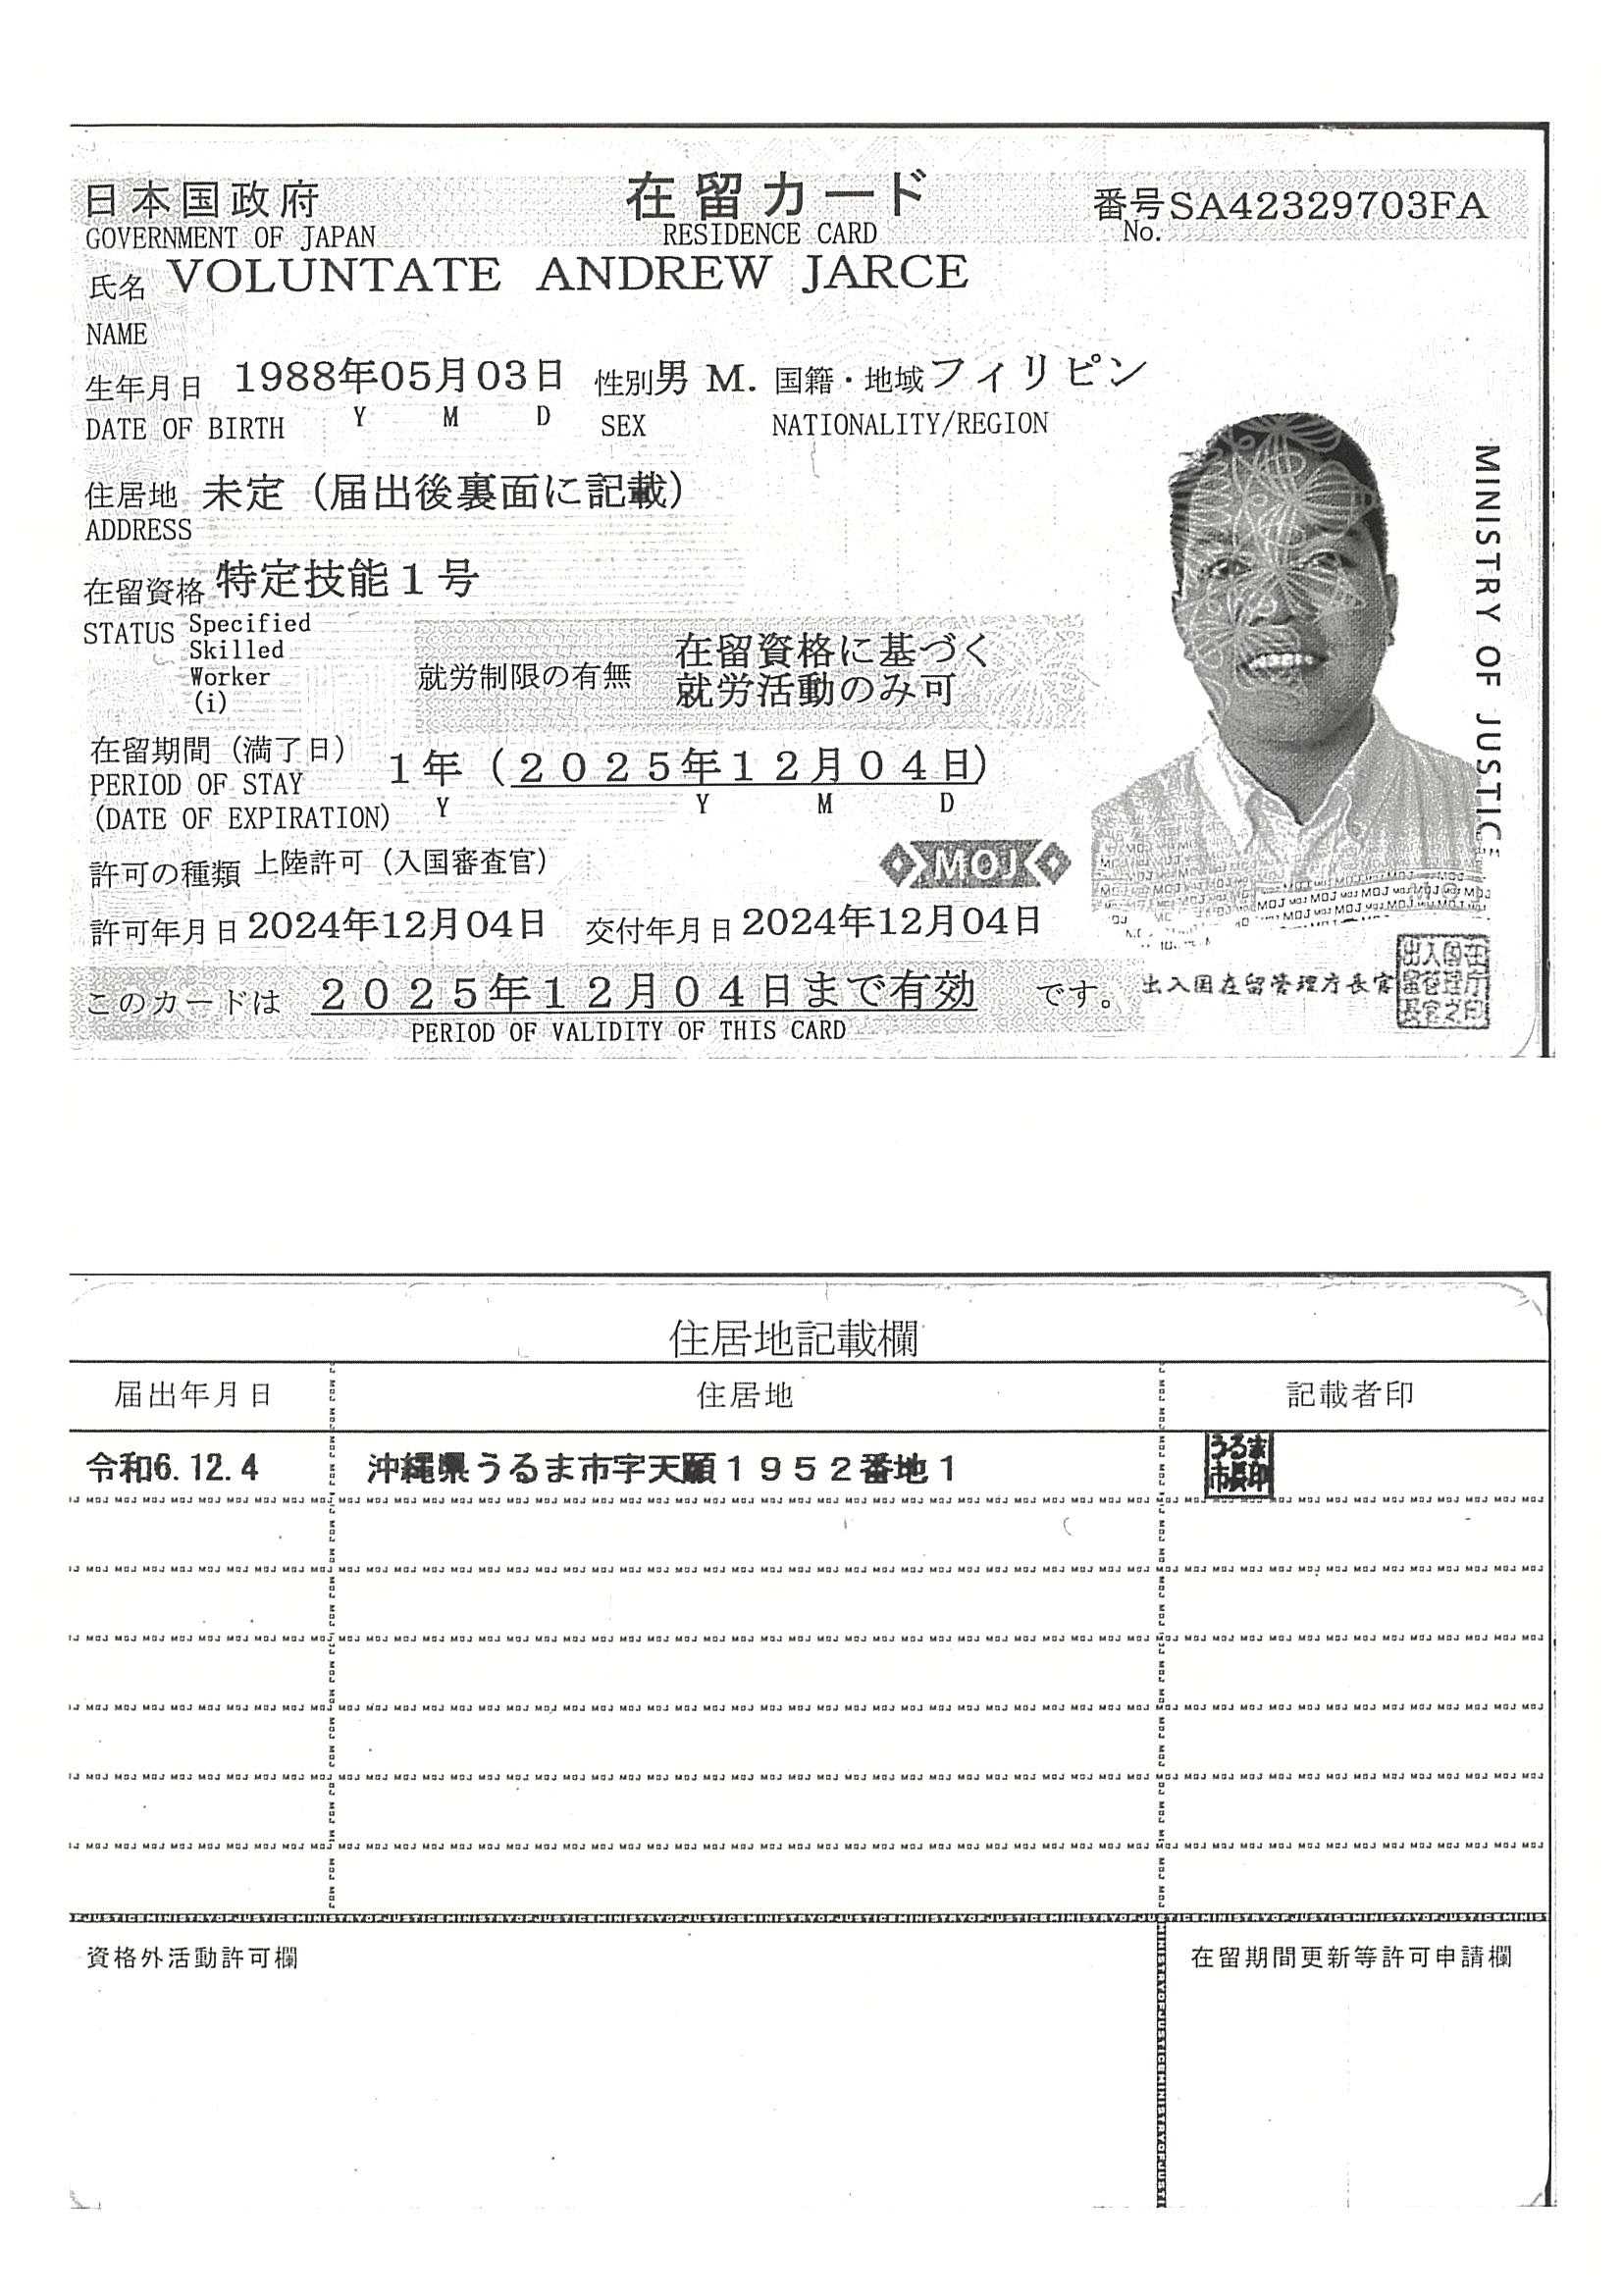 日本国政府 在留カード 番号SA42329703FA
GOVERNMENT OF JAPAN RESIDENCE CARD No.
氏名 VOLUNTATE ANDREW JARCE
NAME
生年月日 1988年05月03日 性別 男 M. 国籍・地域 フィリピン
DATE OF BIRTH Y M D SEX NATIONALITY/REGION
住居地 未定（届出後裏面に記載）
ADDRESS
在留資格 特定技能1号
STATUS Specified
Skilled
Worker
(i)
就労制限の有無 在留資格に基づく
就労活動のみ可
在留期間（満了日） 1年（2025年12月04日）
PERIOD OF STAY
(DATE OF EXPIRATION) Y Y M D
許可の種類 上陸許可（入国審査官）
MOJ
許可年月日 2024年12月04日 交付年月日 2024年12月04日
このカードは 2025年12月04日まで有効 です。
PERIOD OF VALIDITY OF THIS CARD
MINISTRY OF JUSTICE
出入国在留管理庁長官
住居地記載欄
届出年月日 住居地 記載者印
令和6.12.4 沖縄県うるま市字天願1952番地1 うるま市長印
資格外活動許可欄 在留期間更新等許可申請欄